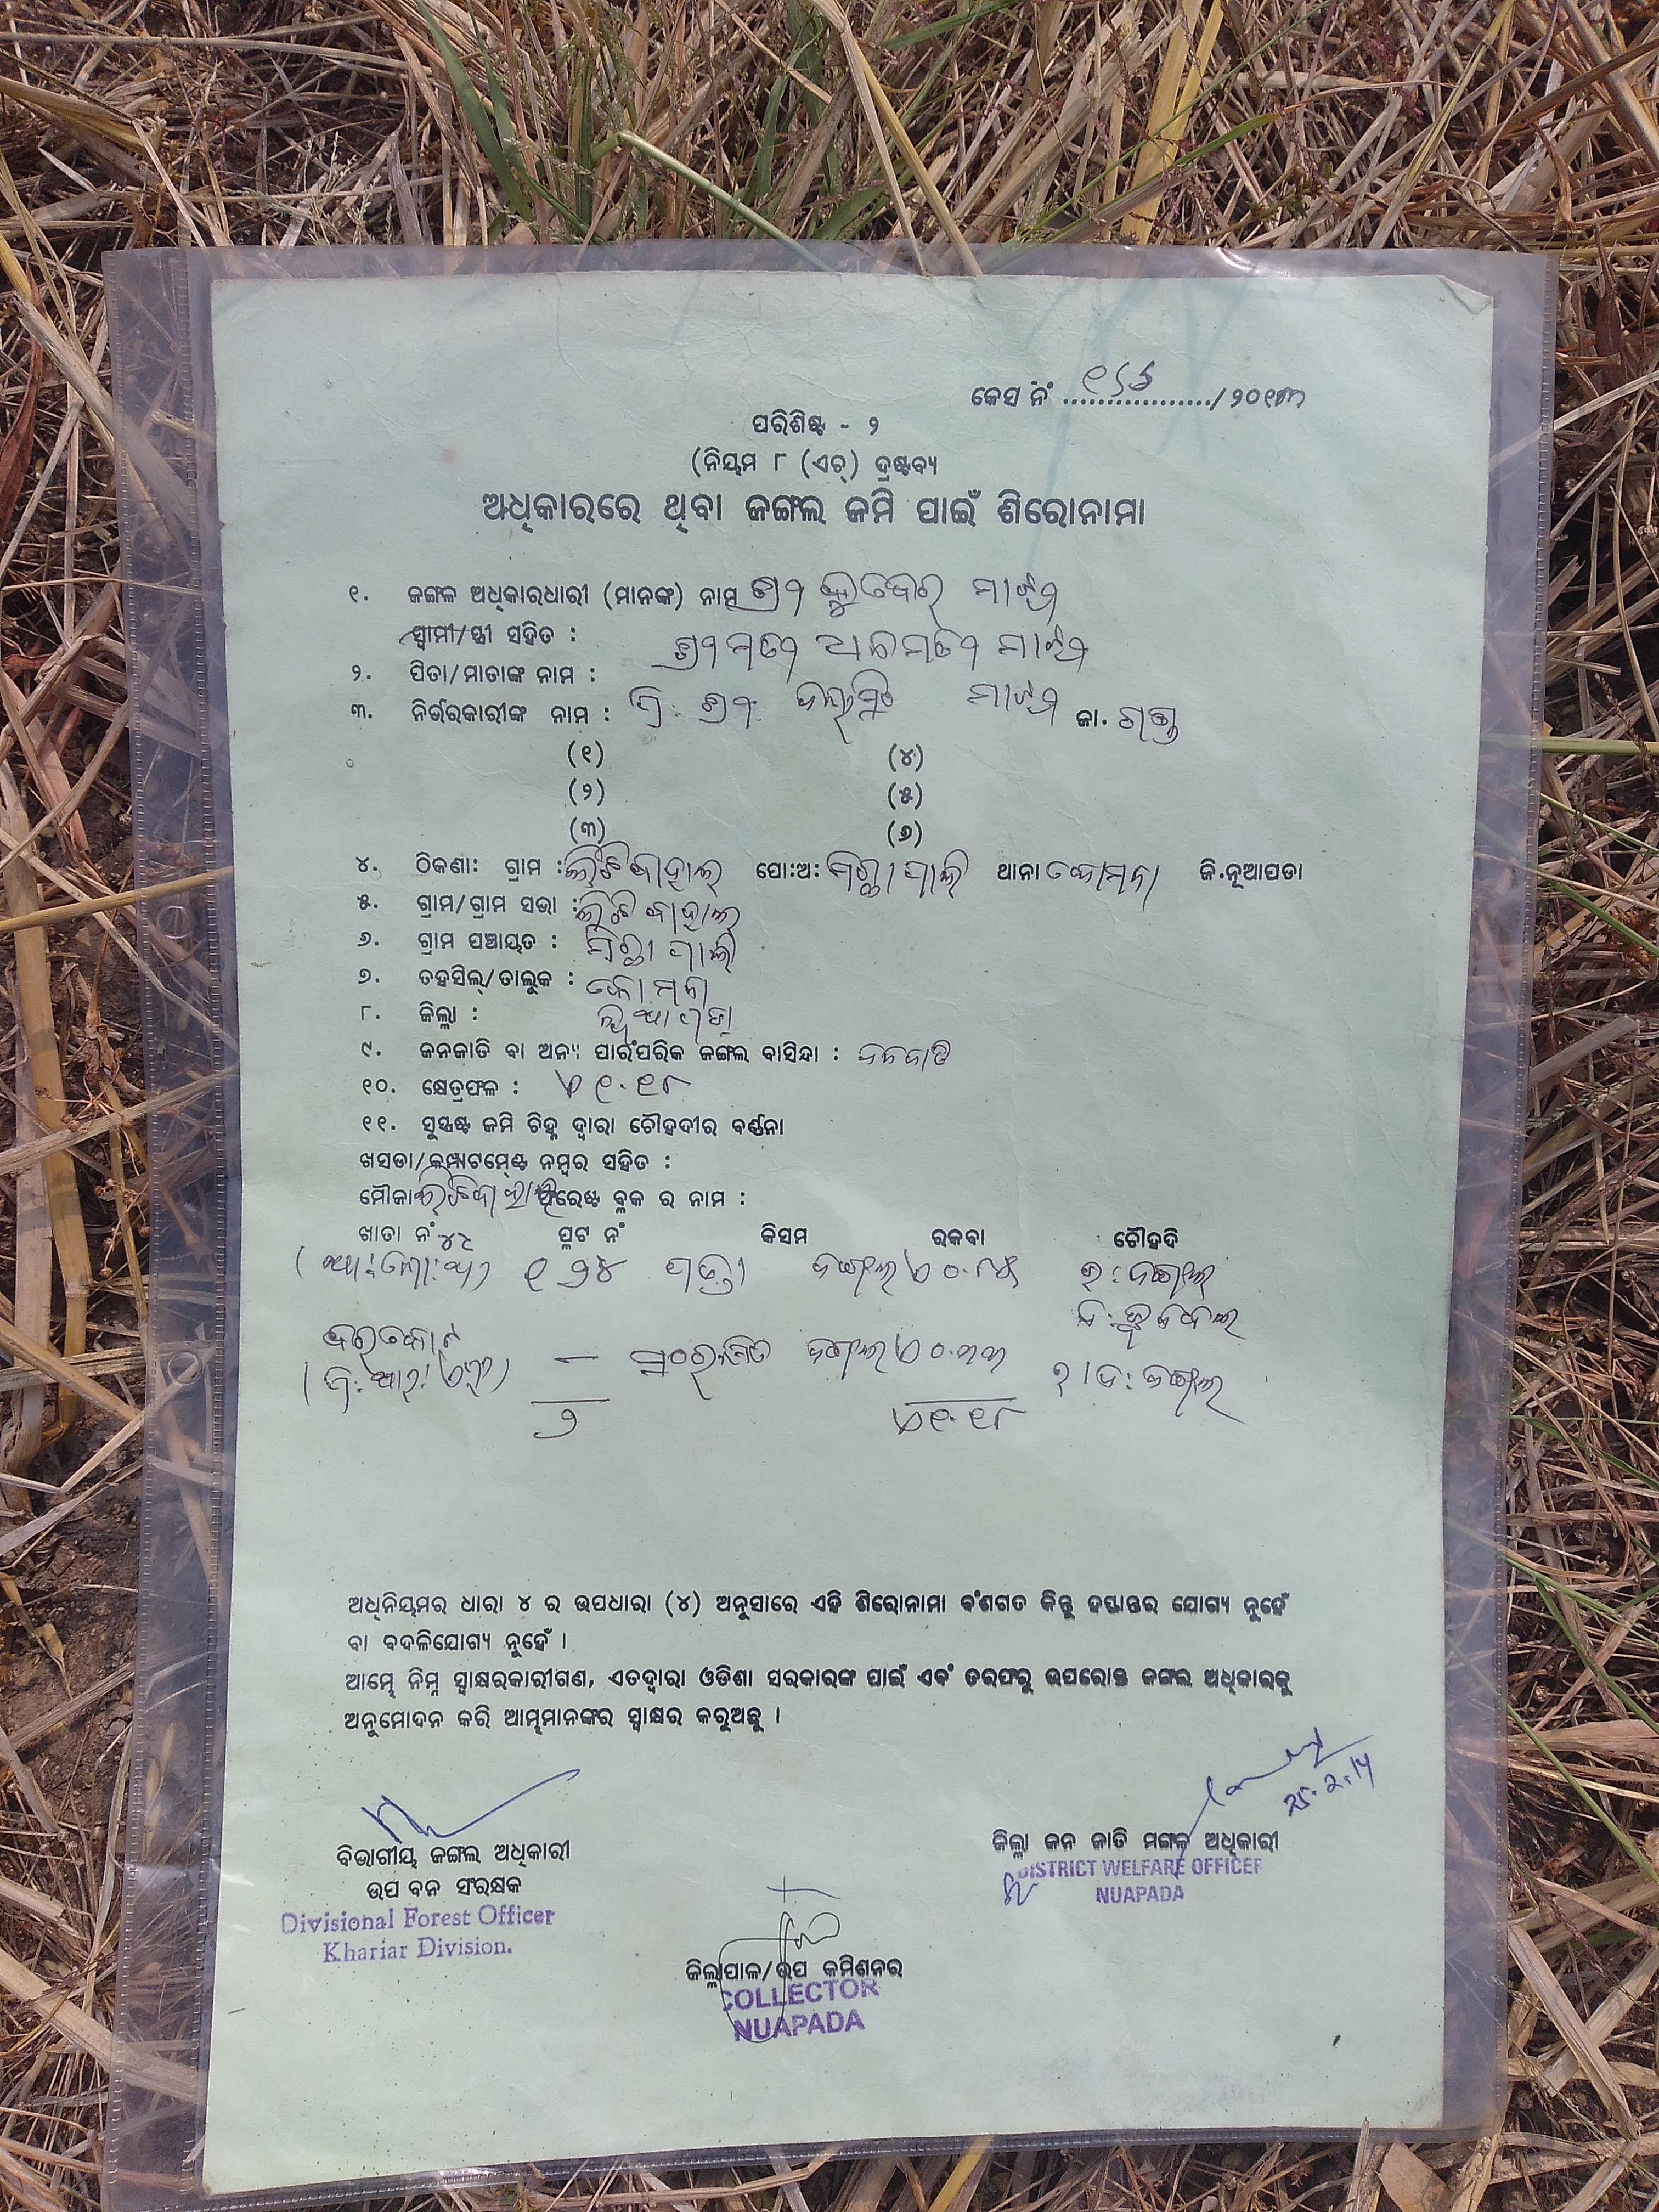 କେସ ନଂ ................./୨୦୧୩
ପରିଶିଷ୍ଟ - ୨
(ନିୟମ ୮ (ଏଚ୍) ଦ୍ରଷ୍ଟବ୍ୟ
ଅଧିକାରରେ ଥିବା ଜଙ୍ଗଲ ଜମି ପାଇଁ ଶିରୋନାମା
୧. ଜଙ୍ଗଳ ଅଧିକାରଧାରୀ (ମାନଙ୍କ) ନାମ ଶ୍ରୀ କୁବେର ମାଝୀ
ସ୍ୱାମୀ/ସ୍ତ୍ରୀ ସହିତ : ଶ୍ରୀମତୀ ମାଝୀ
୨. ପିତା/ମାତାଙ୍କ ନାମ :
୩. ନିର୍ଭରକାରୀଙ୍କ ନାମ : ପି: ଶ୍ରୀ ଜୟସିଂ ମାଝୀ ଜା. ଗଣ୍ଡ
(୧) (୪)
(୨) (୫)
(୩) (୬)
୪. ଠିକଣା: ଗ୍ରାମ : ଲିଟିବାହାଲ୍ ପୋ:ଅ: ଥାନା କୋମନା ଜି.ନୂଆପଡା
୫. ଗ୍ରାମ/ଗ୍ରାମ ସଭା : ଲିଟିବାହାଲ୍
୬. ଗ୍ରାମ ପଞ୍ଚାୟତ :
୭. ତହସିଲ୍/ତାଲୁକ : କୋମନା
୮. ଜିଲ୍ଲା : ନୂଆପଡା
୯. ଜନଜାତି ବା ଅନ୍ୟ ପାରଂପରିକ ଜଙ୍ଗଲ ବାସିନ୍ଦା : ଜନଜାତି
୧୦. କ୍ଷେତ୍ରଫଳ : ଏ ୧.୧୮
୧୧. ସୁସ୍ପଷ୍ଟ ଜମି ଚିହ୍ନ ଦ୍ୱାରା ଚୌହଦୀର ବର୍ଣ୍ଣନା
ଖସଡା/କମ୍ପାଟମେଣ୍ଟ ନମ୍ବର ସହିତ :
ମୌଜା ଲିଟିବାହାଲ ଫରେଷ୍ଟ ବ୍ଲକ ର ନାମ :
ଖାତା ନଂ ପ୍ଲଟ ନଂ କିସମ ରକବା ଚୌହଦି
୧୨୪ ଜଙ୍ଗଲ ଏ ୦.୮୫ ଉ: ଜଙ୍ଗଲ
ସଂରକ୍ଷିତ ଜଙ୍ଗଲ ଏ ୦.୩୩ ଜଙ୍ଗଲ
୨ ଏ ୧.୧୮
ଅଧିନିୟମର ଧାରା ୪ ର ଉପଧାରା (୪) ଅନୁସାରେ ଏହି ଶିରୋନାମା ବଂଶଗତ କିନ୍ତୁ ହସ୍ତାନ୍ତର ଯୋଗ୍ୟ ନୁହେଁ
ବା ବଦଳିଯୋଗ୍ୟ ନୁହେଁ ।
ଆମ୍ଭେ ନିମ୍ନ ସ୍ୱାକ୍ଷରକାରୀଗଣ, ଏତଦ୍ୱାରା ଓଡିଶା ସରକାରଙ୍କ ପାଇଁ ଏବଂ ତରଫରୁ ଉପରୋକ୍ତ ଜଙ୍ଗଲ ଅଧିକାରକୁ
ଅନୁମୋଦନ କରି ଆମ୍ଭମାନଙ୍କର ସ୍ୱାକ୍ଷର କରୁଅଛୁ ।
25.2.14
ବିଭାଗୀୟ ଜଙ୍ଗଲ ଅଧିକାରୀ
ଉପ ବନ ସଂରକ୍ଷକ
Divisional Forest Officer
Khariar Division.
ଜିଲ୍ଲା ଜନ ଜାତି ମଙ୍ଗଳ ଅଧିକାରୀ
DISTRICT WELFARE OFFICER
NUAPADA
ଜିଲ୍ଲାପାଳ/ଉପ କମିଶନର
COLLECTOR
NUAPADA